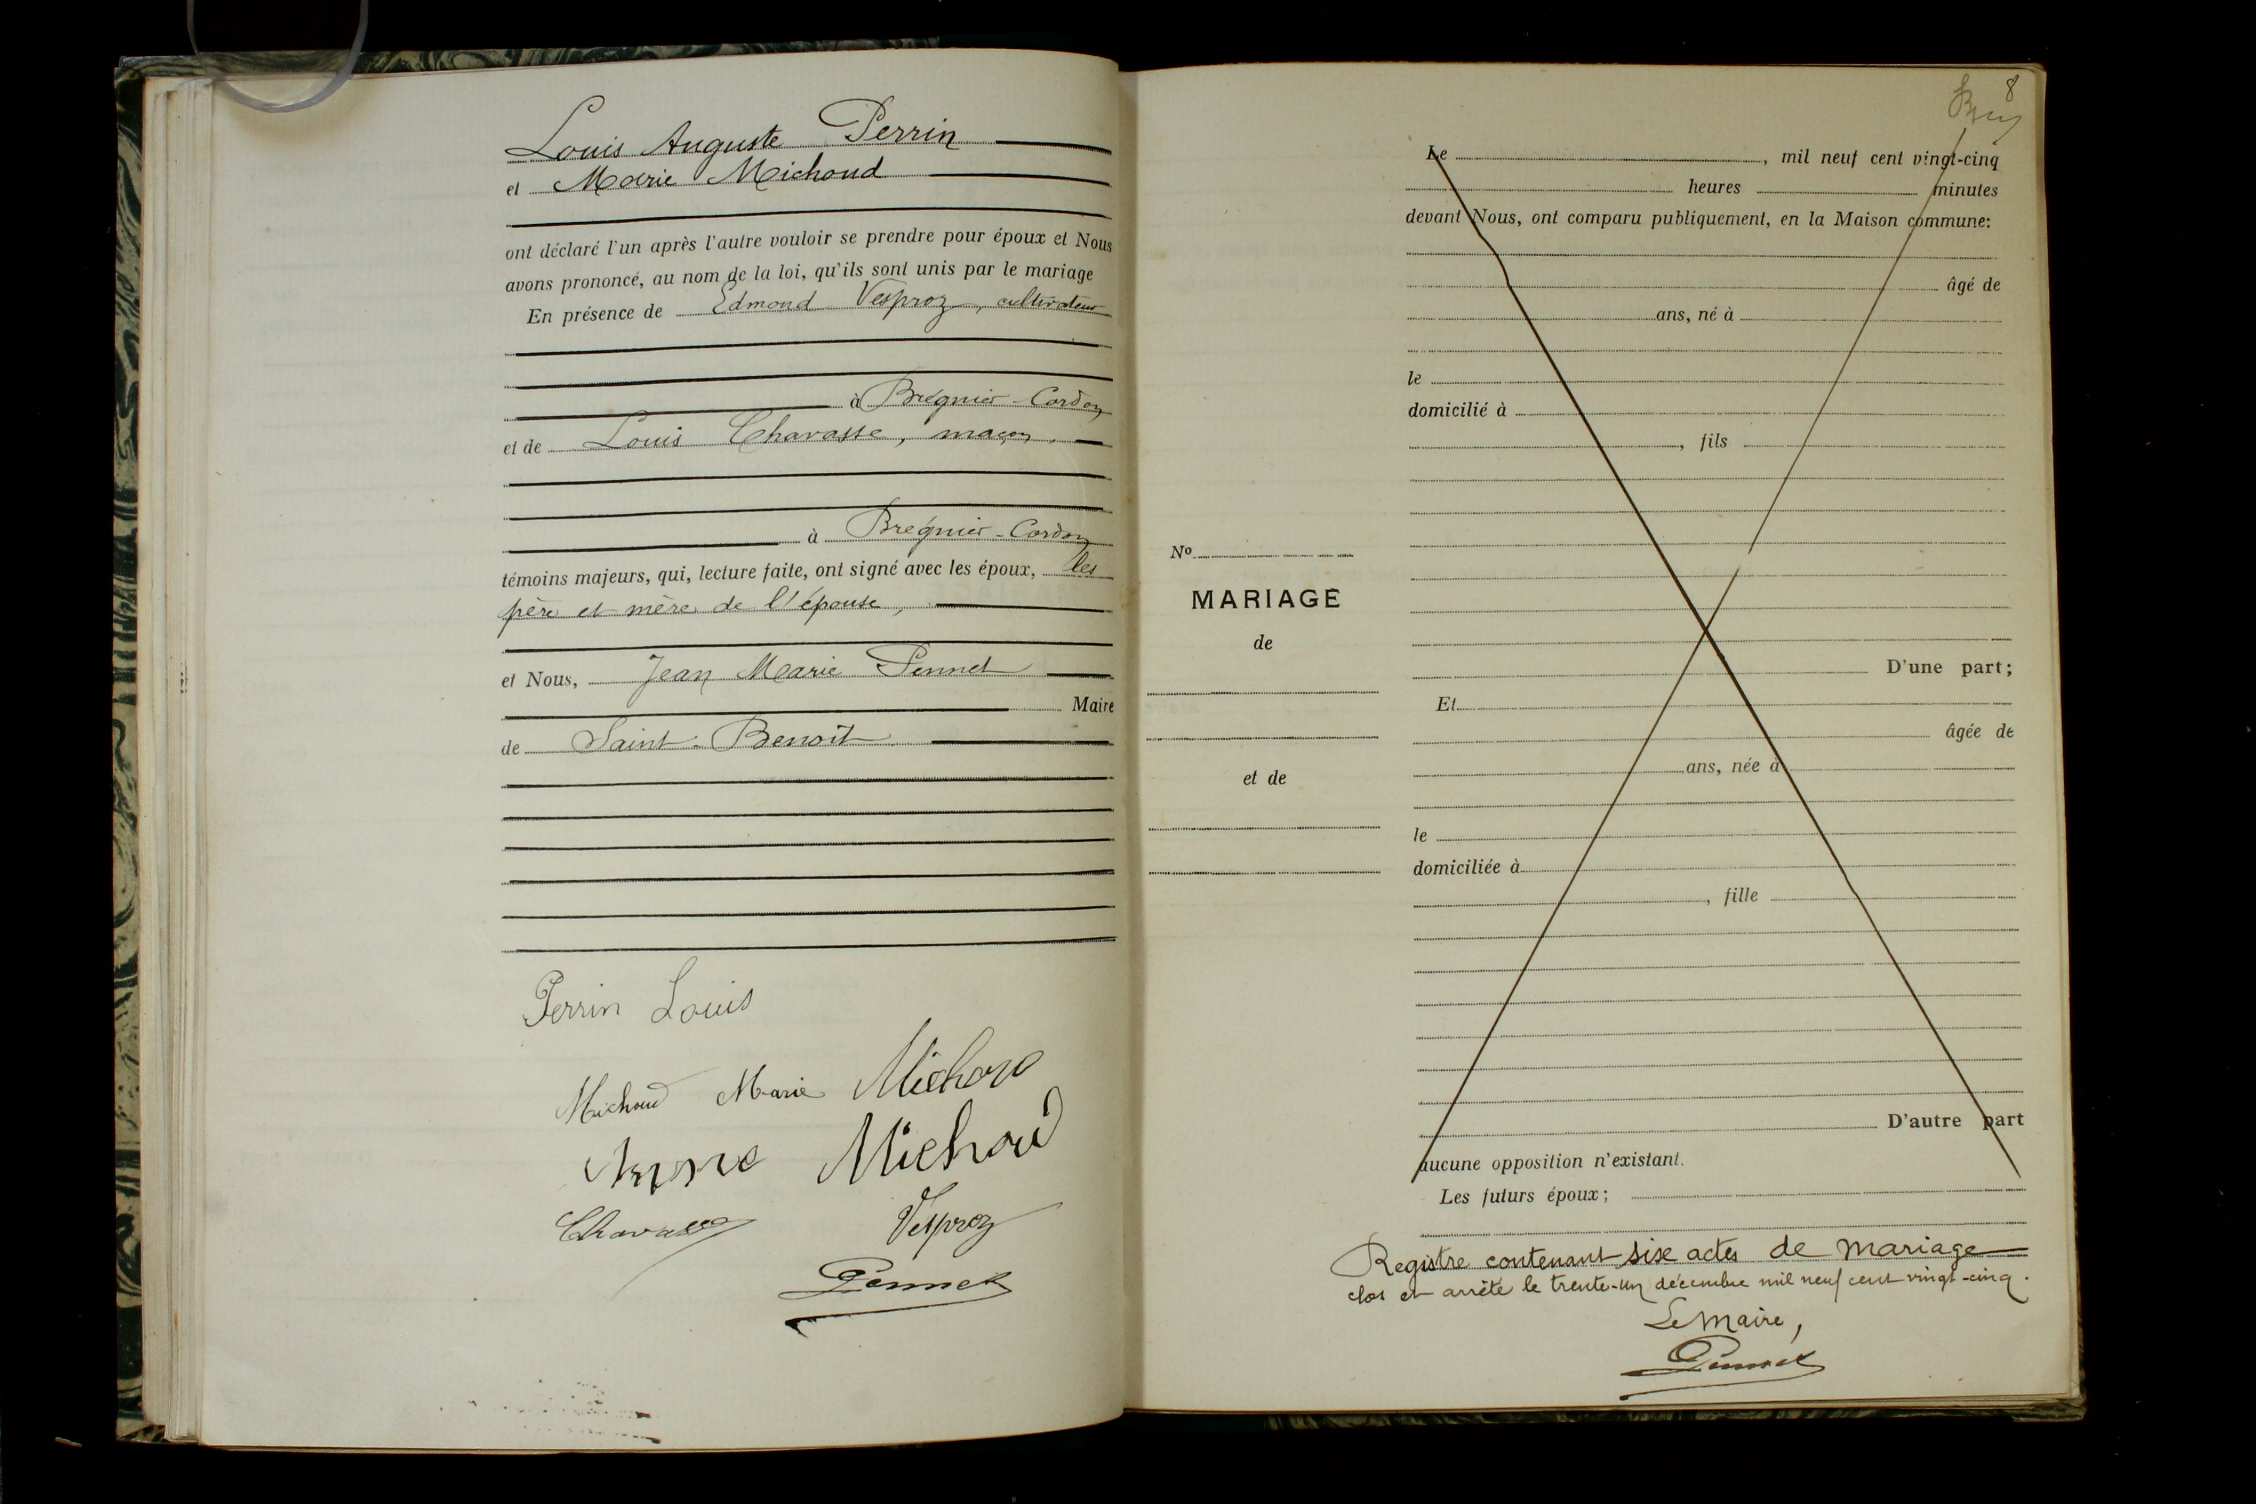 Louis Auguste Perrin
et Marie Michoud
ont déclaré l'un après l'autre vouloir se prendre pour époux et Nous
avons prononcé, au nom de la loi, qu'ils sont unis par le mariage
En présence de Edmond Vesproz, cultivateur
à Brégnier-Cordon
et de Louis Chavasse, maçon,
à Brégnier-Cordon
témoins majeurs, qui, lecture faite, ont signé avec les époux, les
père et mère de l'épouse,
et Nous, Jean Marie Pennet
Maire
de Saint-Benoît
Perrin Louis
Michoud Marie Michoud
Anne Michoud
Chavasse Vesproz
Pennet
8
Le , mil neuf cent vingt-cinq
heures minutes
devant Nous, ont comparu publiquement, en la Maison commune:
âgé de
ans, né à
le
domicilié à
, fils
No
MARIAGE
de
et de
D'une part;
Et
âgée de
ans, née à
le
domiciliée à
, fille
D'autre part
aucune opposition n'existant.
Les futurs époux;
Registre contenant six actes de mariage
clos et arrêté le trente-un décembre mil neuf cent vingt-cinq.
Le Maire,
Pennet